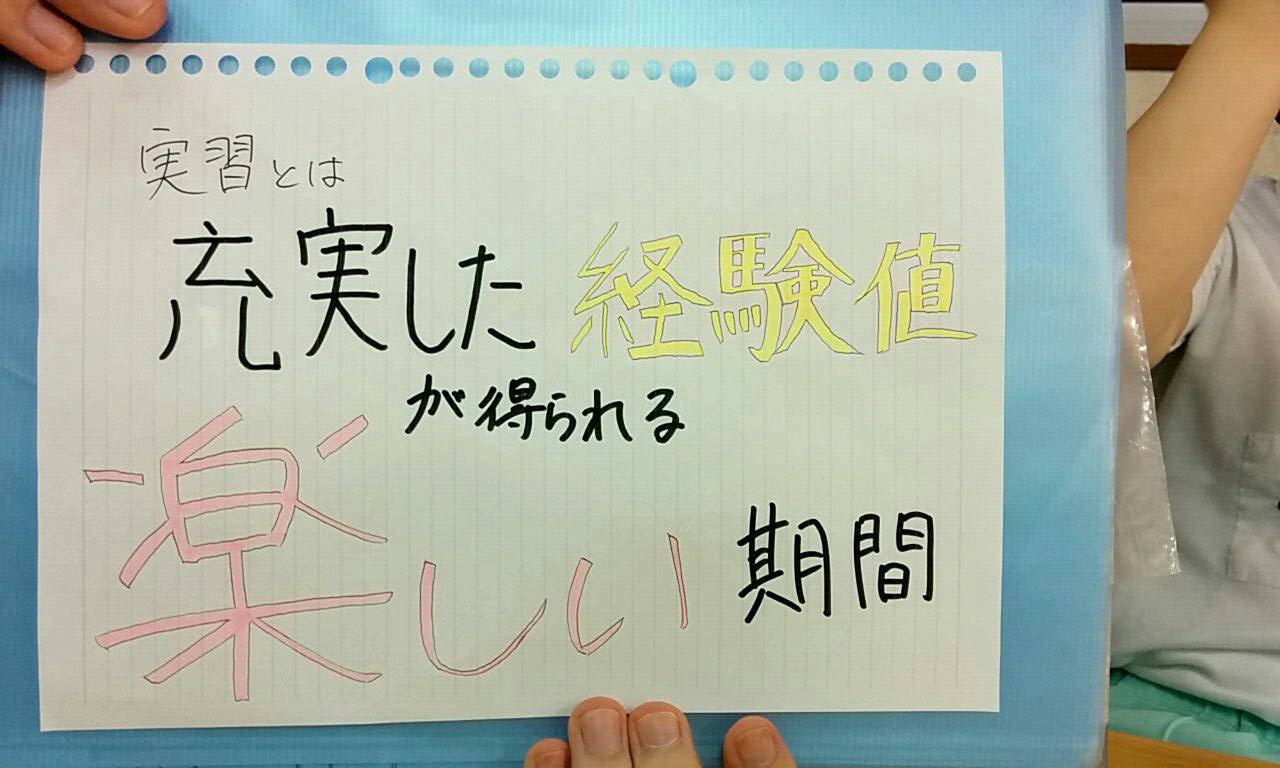 実習とは
充実した経験値
が得られる
楽しい期間